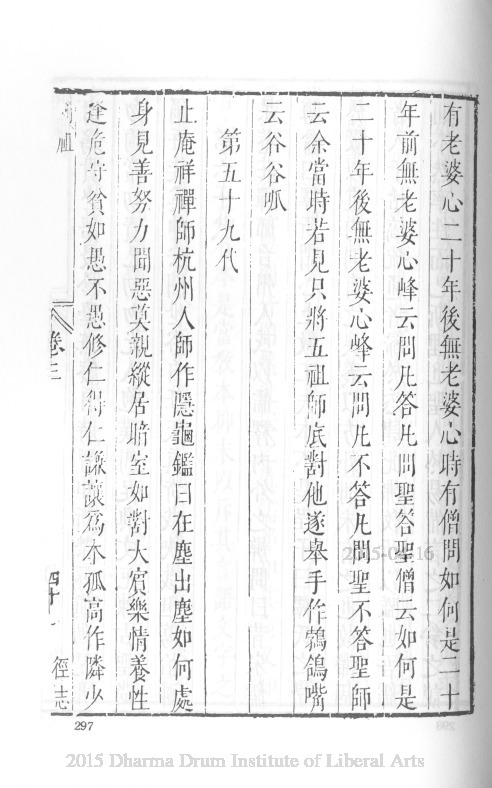 有老婆心二十年後無老婆心時有僧問如何是二十
年前無老婆心峰云問凡答凡問聖答聖僧云如何是
二十年後無老婆心峰云問凡不答凡問聖不答聖師
云余當時若見只將五祖師底對他遂舉手作鵓鴿嘴
云谷谷呱
第五十九代
止庵祥禪師杭州人師作隱龜鑑曰在塵出塵如何處
身見善努力聞惡莫親縱居暗室如對大賓樂情養性
逢危守貧如愚不愚修仁得仁謙讓爲本孤高作隣少
卷三
四十
徑志
297
2015 Dharma Drum Institute of Liberal Arts